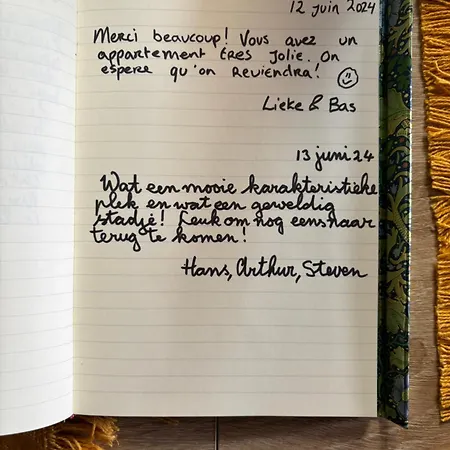 12 juin 2024
Merci beaucoup! Vous avez un
appartement très jolie. On
espere qu'on reviendra! ☺
Lieke & Bas
13 juni 24
Wat een mooie karakteristieke
plek en wat een geweldig
stadje! Leuk om nog eens naar
terug te komen!
Hans, Arthur, Steven